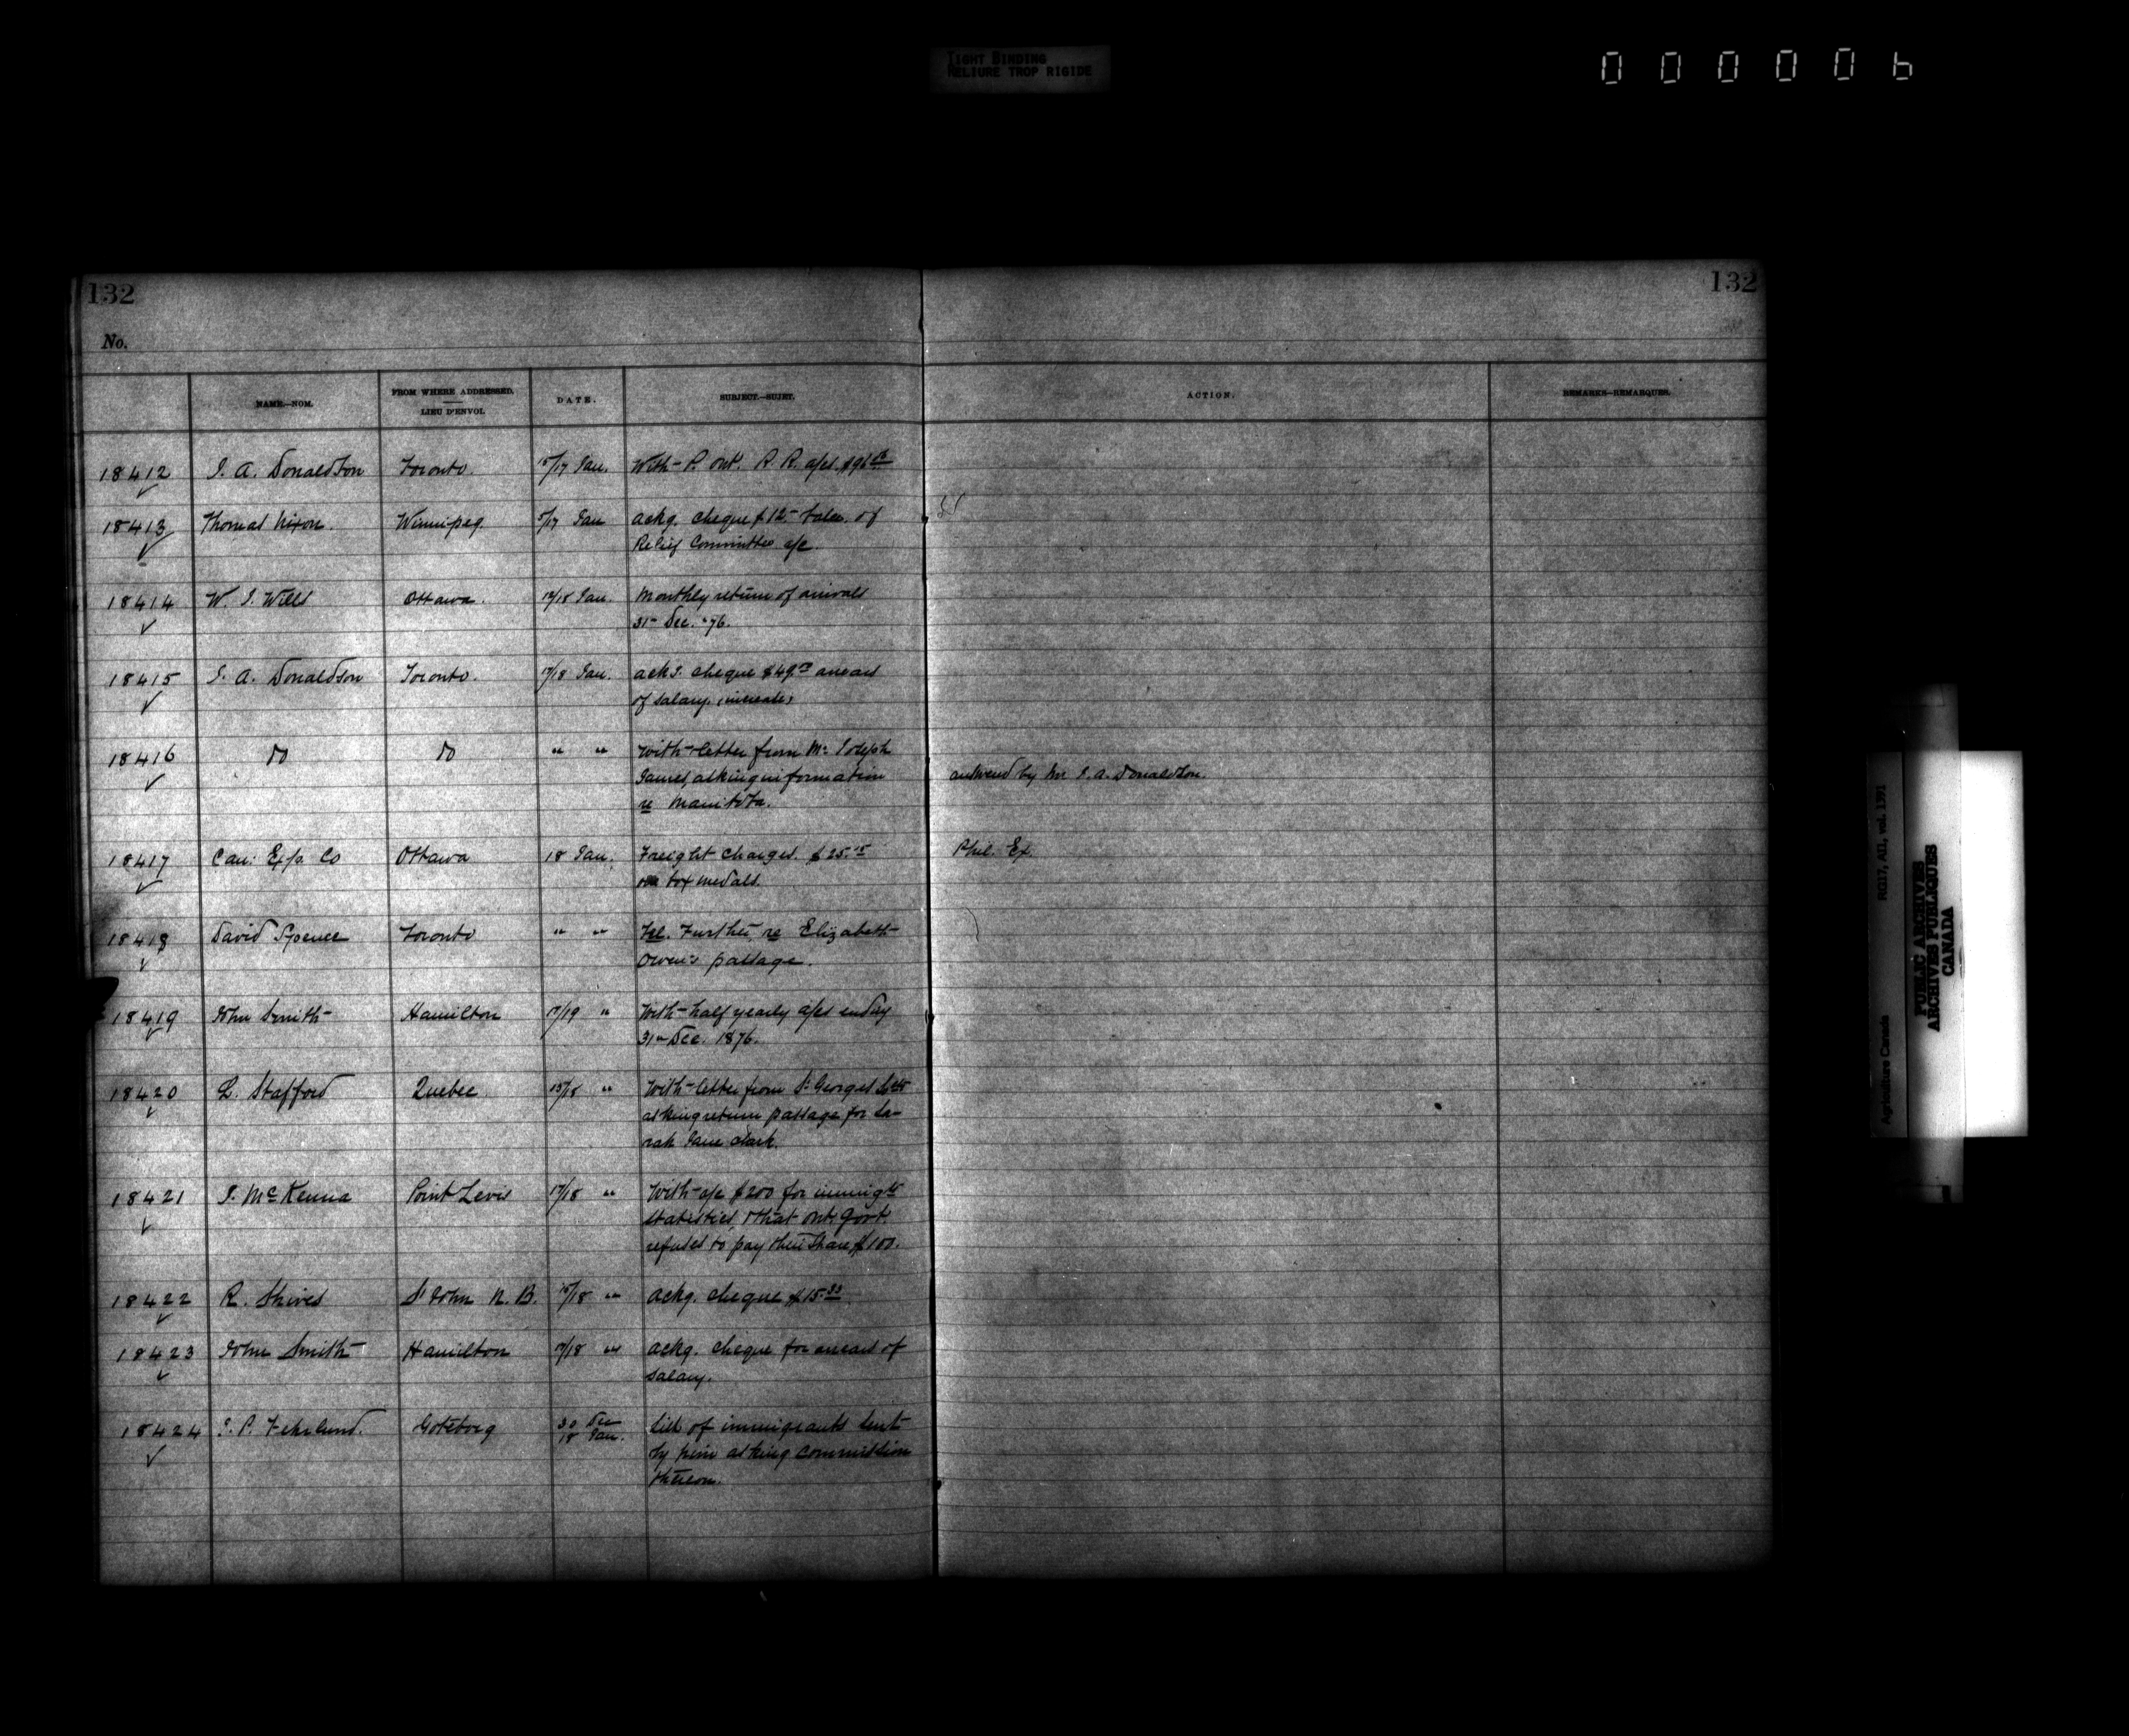 TIGHT BINDING
RELIURE TROP RIGIDE
000006
132 132
No.
NAME.—NOM. FROM WHERE ADDRESSED. LIEU D'ENVOI. DATE. SUBJECT.—SUJET. ACTION. REMARKS—REMARQUES.
18412 J. A. Donaldson Toronto. /17 Jan. With P. Ont. R. R. a/cs $96
18413 Thomas Nixon. Winnipeg. 5/17 Jan ackg. cheque $12.- balce. of
Relief Committee a/c.
18414 W. J. Wills Ottawa. 17/18 Jan. Monthly return of arrivals
31 Dec. '76.
18415 J. A. Donaldson Toronto. 17/18 Jan. acks. cheque $49. arrears
of salary. (increase)
18416 Do Do " " With letter from Mr Joseph
James, asking information
re Manitoba.
answered by Mr J. A. Donaldson.
18417 Can: Exp. Co Ottawa 18 Jan. Freight charges. $25.15
box medals.
Phil. Ex.
18418 David Spence Toronto " " Tel. Further re Elizabeth
Owen's passage.
18419 John Smith Hamilton 17/19 " With half yearly a/cs endg
31 Dec. 1876.
18420 L. Stafford Quebec 15/18 " With letter from St Georges Soc
asking return passage for Sa-
rah Jane Clark.
18421 J. McKenna Point Levis 17/18 " With a/c $200 for immigt
statistics, & that Ont. Govt.
refuses to pay their share $100.
18422 R. Shives St John N. B. 15/18 " ackg. cheque $15.33
18423 John Smith Hamilton 17/18 " ackg. cheque for arrears of
salary.
18424 Göteborg 30 Dec
18 Jan. List of immigrants sent
by him asking commission
thereon.
Agriculture Canada RG17, AII, vol. 1391
PUBLIC ARCHIVES
ARCHIVES PUBLIQUES
CANADA